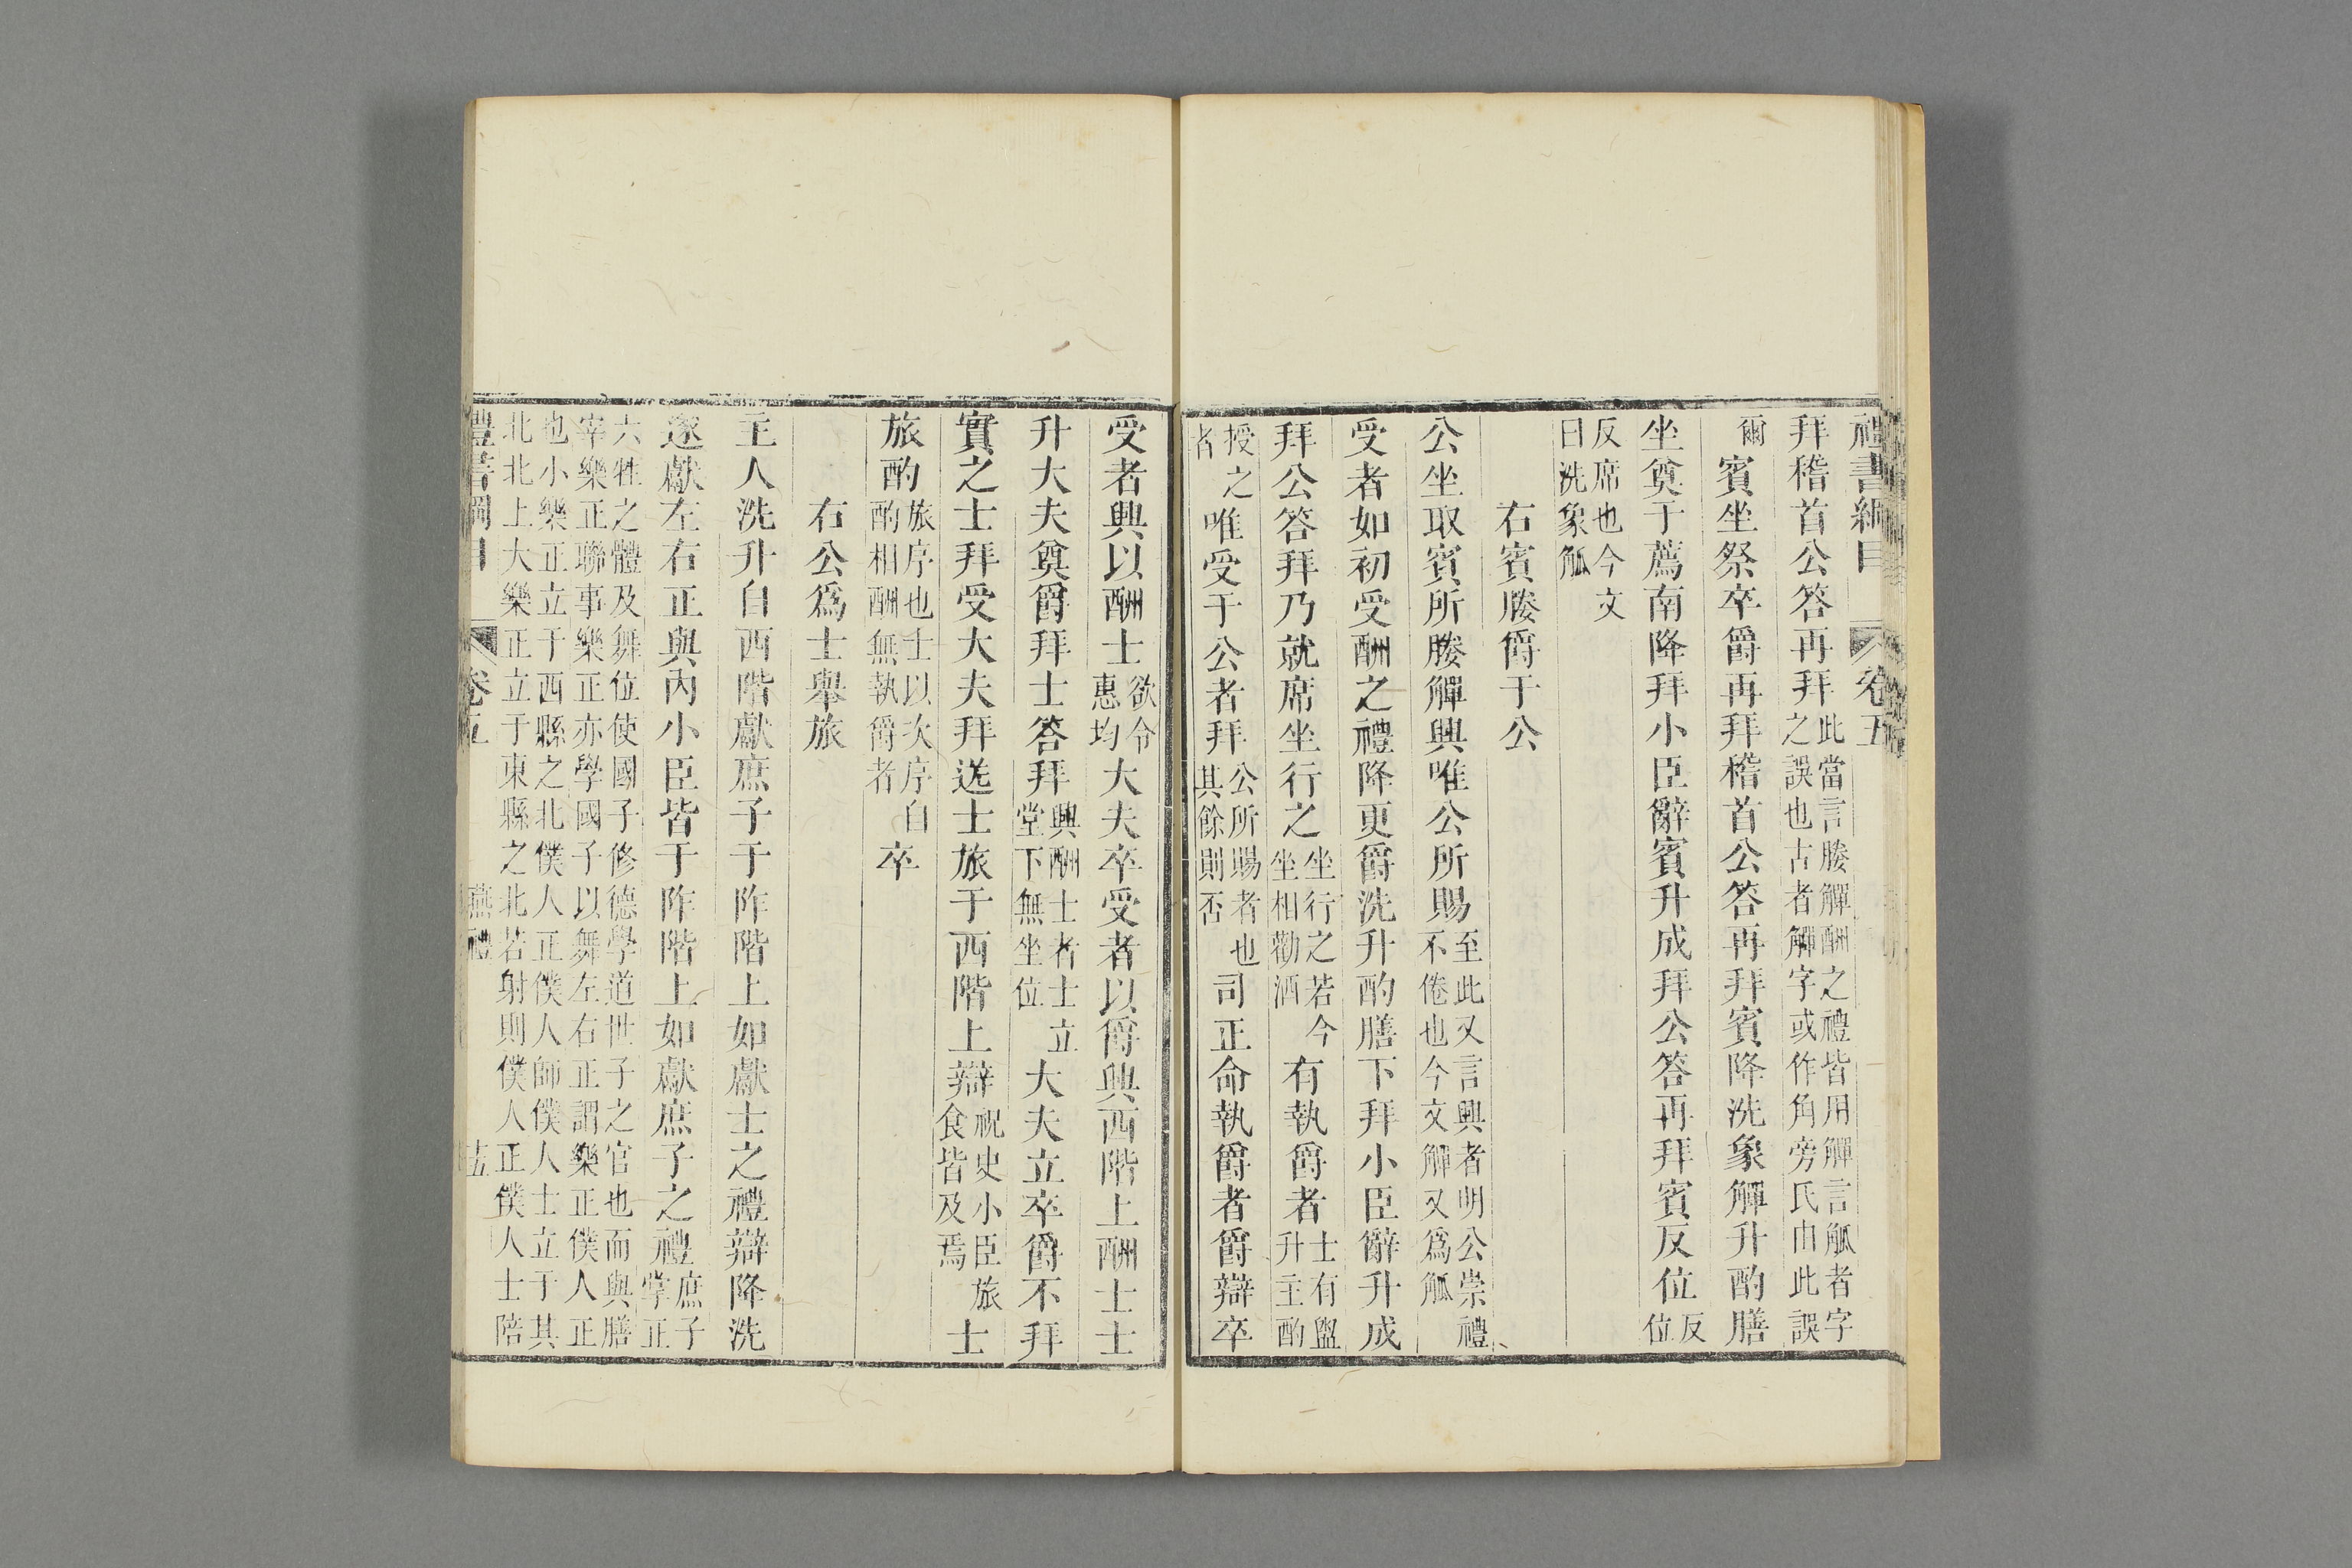 禮書綱目 卷五
拜稽首公答再拜此當言媵觶酬之禮皆用觶言觚者字之誤也古者觶字或作角旁氏由此誤
爾賓坐祭卒爵再拜稽首公答再拜賓降洗象觶升酌膳
坐奠于薦南降拜小臣辭賓升成拜公答再拜賓反位反位
反席也今文曰洗象觚
右賓媵爵于公
公坐取賓所媵觶興唯公所賜至此又言興者明公崇禮不倦也今文觶又爲觚
受者如初受酬之禮降更爵洗升酌膳下拜小臣辭升成
拜公答拜乃就席坐行之坐行之若今坐相勸酒有執爵者士有盥升主酌
授之者唯受于公者拜公所賜者也其餘則否司正命執爵者爵辯卒
受者興以酬士欲令惠均大夫卒受者以爵興西階上酬士士
升大夫奠爵拜士答拜興酬士者士立堂下無坐位大夫立卒爵不拜
實之士拜受大夫拜送士旅于西階上辯祝史小臣旅食皆及焉士
旅酌旅序也士以次序自酌相酬無執爵者卒
右公爲士舉旅
主人洗升自西階獻庶子于阼階上如獻士之禮辯降洗
遂獻左右正與內小臣皆于阼階上如獻庶子之禮庶子掌正
六牲之體及舞位使國子修德學道世子之官也而與膳宰樂正聯事樂正亦學國子以舞左右正謂樂正僕人正
也小樂正立于西縣之北僕人正僕人師僕人士立于其北北上大樂正立于東縣之北若射則僕人正僕人士陪
禮書綱目 卷五 燕禮 十五